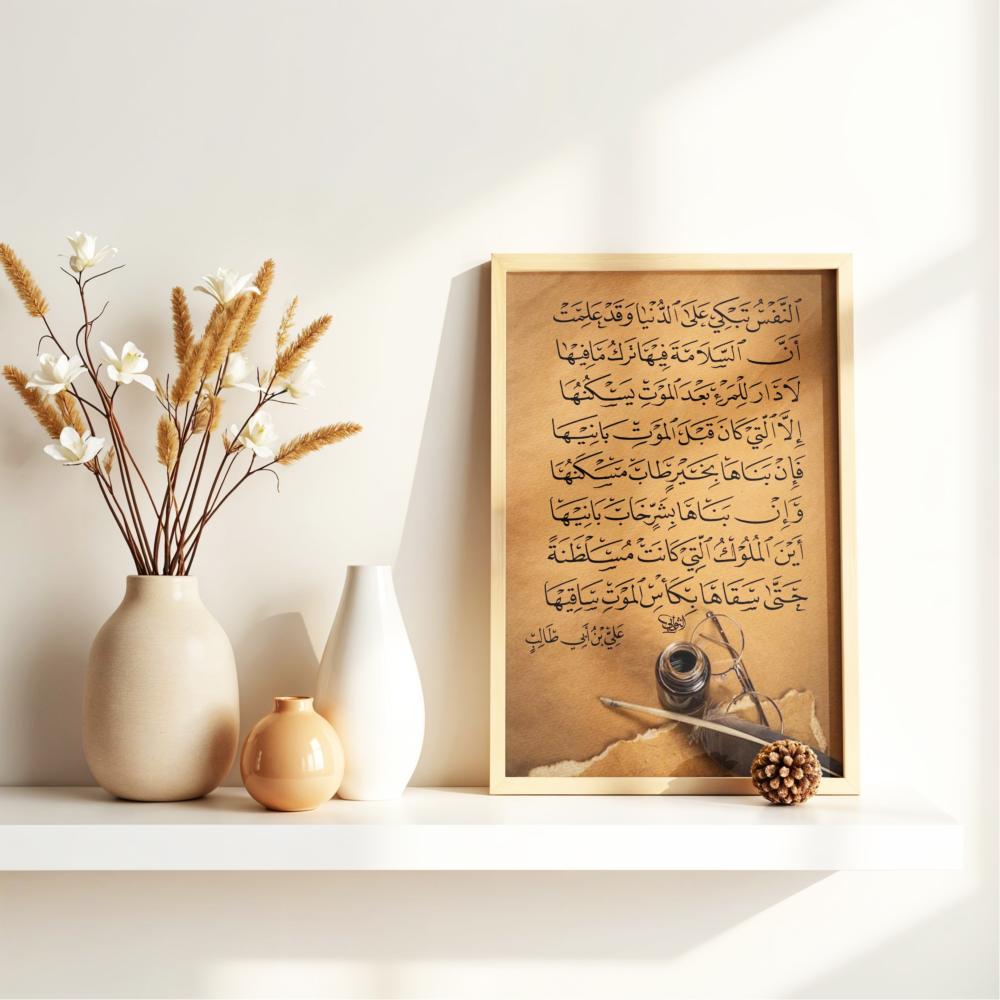 اَلنَّفْسُ تَبْكِي عَلَى الدُّنْيَا وَقَدْ عَلِمَتْ
أَنَّ السَّلَامَةَ فِيهَا تَرْكُ مَا فِيهَا
لَا دَارَ لِلْمَرْءِ بَعْدَ الْمَوْتِ يَسْكُنُهَا
إِلَّا الَّتِي كَانَ قَبْلَ الْمَوْتِ بَانِيهَا
فَإِنْ بَنَاهَا بِخَيْرٍ طَابَ مَسْكَنُهَا
وَإِنْ بَنَاهَا بِشَرٍّ خَابَ بَانِيهَا
أَيْنَ الْمُلُوكُ الَّتِي كَانَتْ مُسَلْطَنَةً
حَتَّى سَقَاهَا بِكَأْسِ الْمَوْتِ سَاقِيهَا
عَلِيُّ بْنُ أَبِي طَالِبٍ